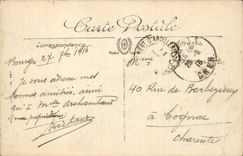 Carte Postale
Correspondance
Bourges 27 7bre 1916
je vous adresse mes
bonnes amitiés, ainsi
qu'à Mme Archambaud
ma propriétaire
40 Rue de Barbezieux
à Cognac
Charente